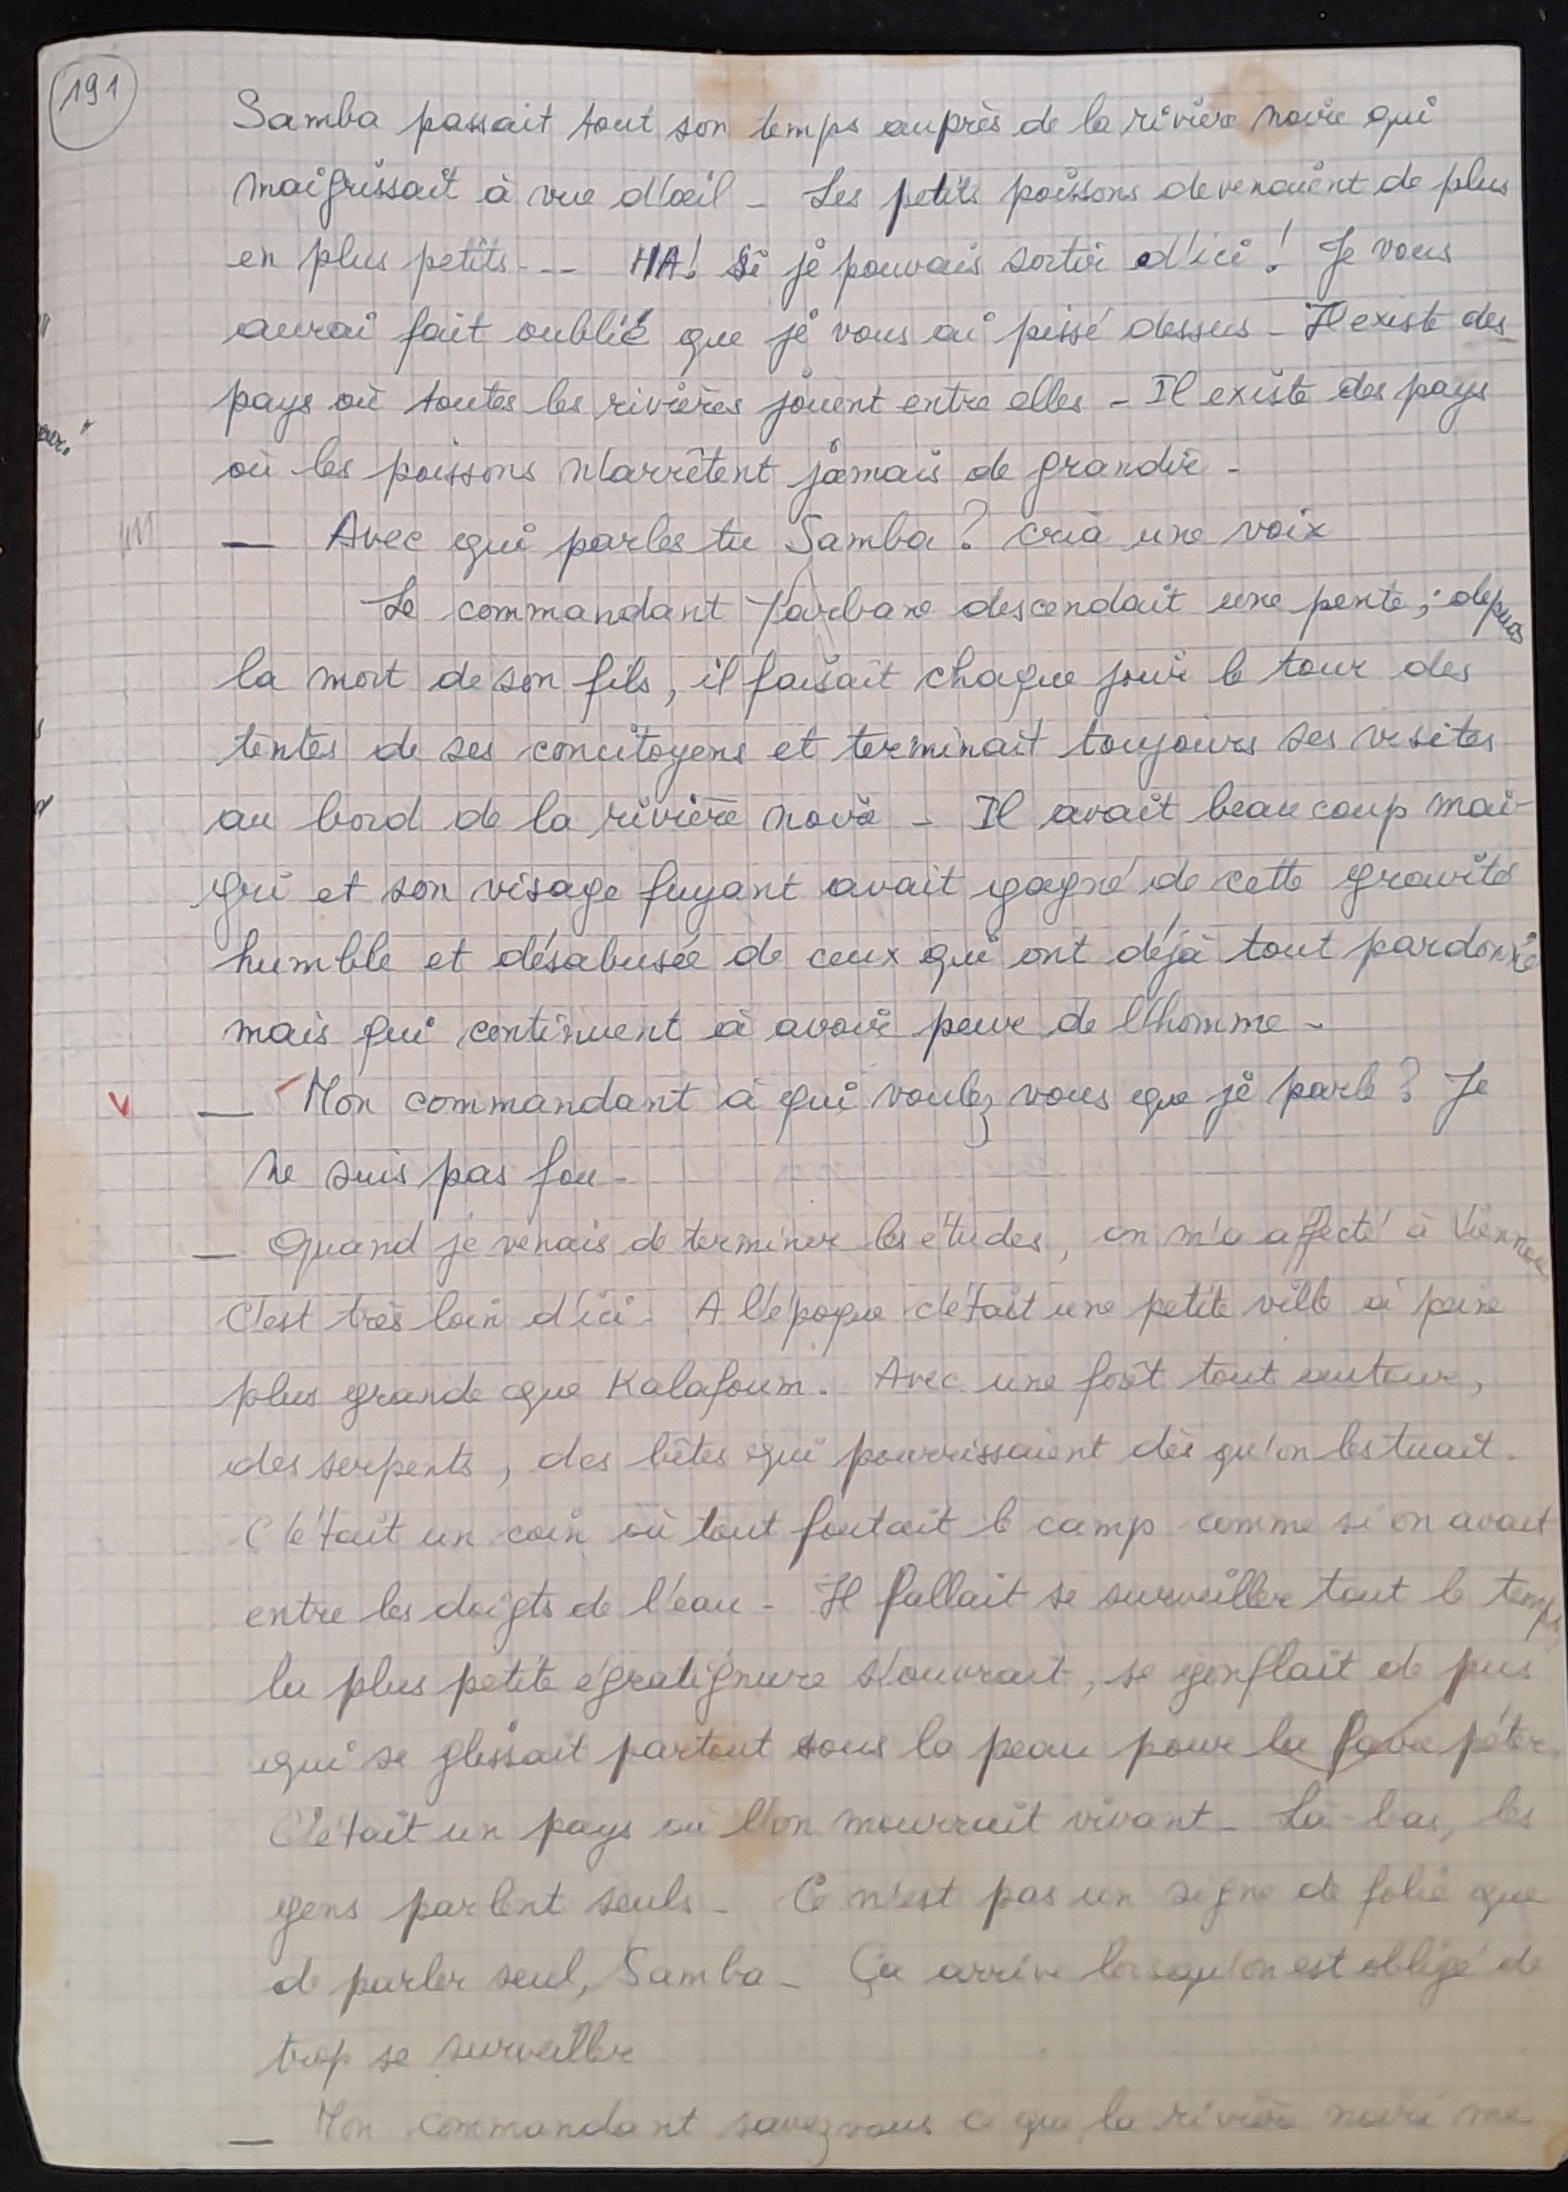 191
Samba passait tout son temps auprès de la rivière noire qui
maigrissait à vue d'œil - Les petits poissons devenaient de plus
en plus petits --- HA! Si je pouvais sortir d'ici! Je vous
aurai fait oublié que je vous ai pissé dessus - Il existe des
pays où toutes les rivières jouent entre elles - Il existe des pays
où les poissons n'arrêtent jamais de grandir -
— Avec qui parles tu Samba? cria une voix
Le commandant descendait une pente; depuis
la mort de son fils, il faisait chaque jour le tour des
tentes de ses concitoyens et terminait toujours ses visites
au bord de la rivière noire - Il avait beaucoup mai-
gri et son visage fuyant avait gagné de cette gravité
humble et désabusée de ceux qui ont déjà tout pardonné
mais qui continuent à avoir peur de l'homme -
— Mon commandant à qui voulez vous que je parle? Je
ne suis pas fou -
— Quand je venais de terminer les études, on m'a affecté à Vienne
C'est très loin d'ici. A l'époque c'était une petite ville à peine
plus grande que Kalafoum. Avec une forêt tout autour,
des serpents, des bêtes qui pourrissaient dès qu'on les tuait.
C'était un coin où tout foutait le camp comme si on avait
entre les doigts de l'eau - Il fallait se surveiller tout le temps,
la plus petite égratignure s'ouvrait, se gonflait de pus
qui se glissait partout sous la peau pour la faire péter.
C'était un pays où l'on mourrait vivant - Là-bas, les
gens parlent seuls - Ce n'est pas un signe de folie que
de parler seul, Samba - Ça arrive lorsqu'on est obligé de
trop se surveiller
— Mon commandant savez vous ce que la rivière noire me